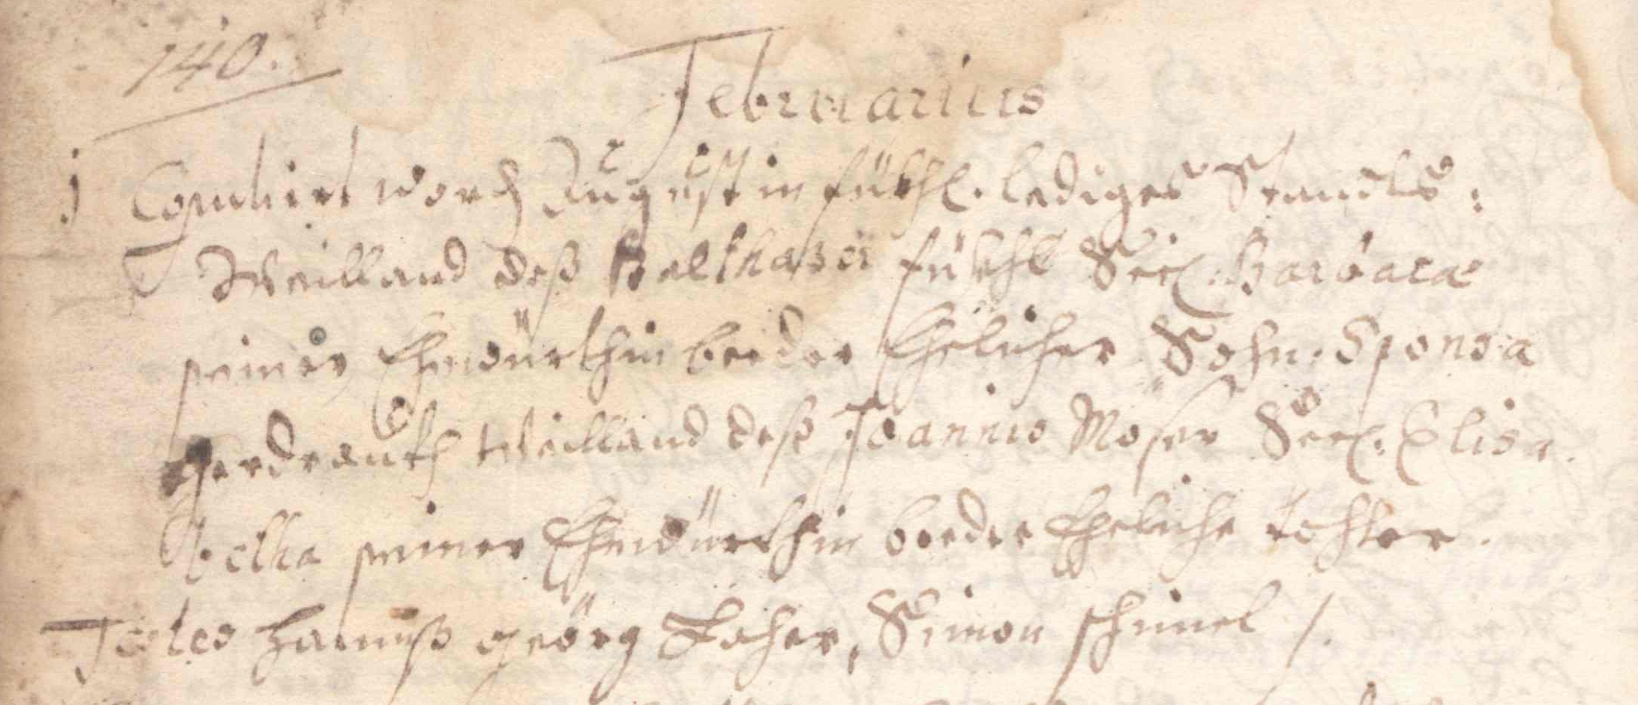 140.
Februarius
1 Copulirt word Augustin fükhl. lediges Standts:
Weilland deß Balthasar fükhl Seel. Barbara
seiner Ehewürthin beeder Ehelicher Sohn. Sponsa
Gerdrauth Weilland deß Joannis Moser Seel: Elisa
betha seiner Ehewürthin beeder Eheliche tochter.
Testes Hannß Geörg Locher, Simon schimel /.